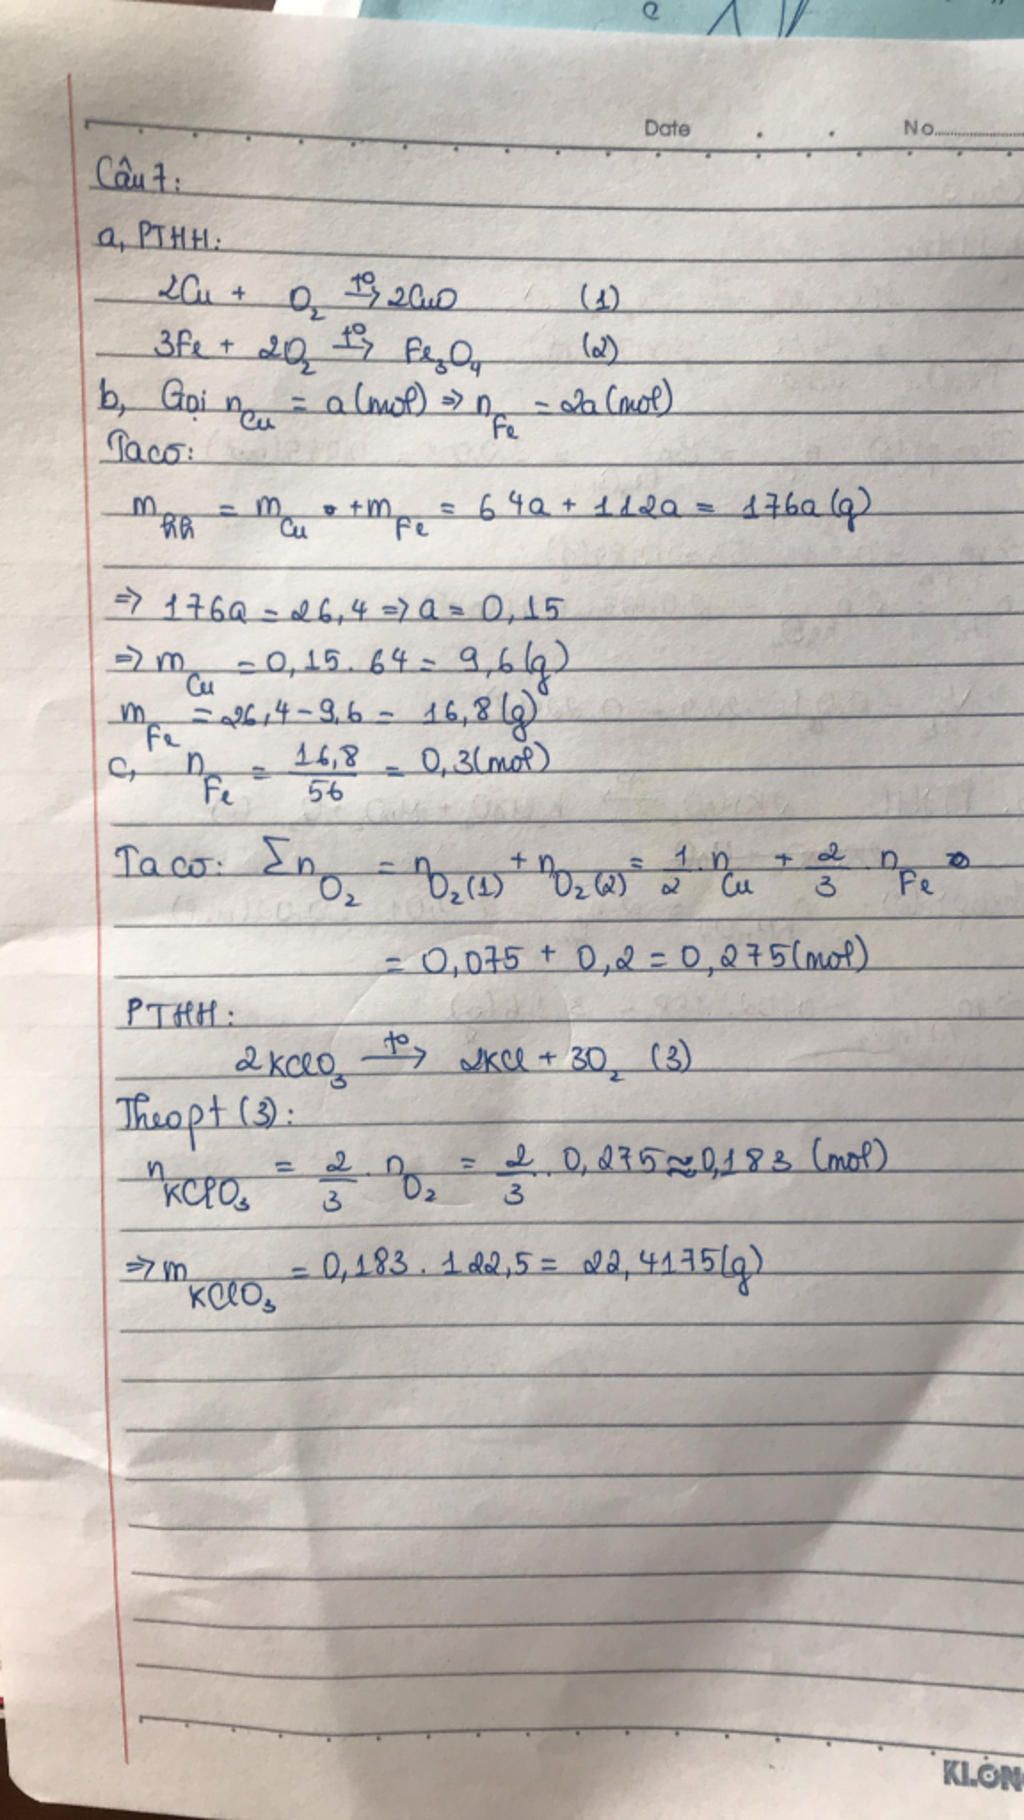 Date . . No.
Câu 7:
a, PTHH:
2Cu + O₂ →(t°) 2CuO (1)
3Fe + 2O₂ →(t°) Fe₃O₄ (2)
b, Gọi n_Cu = a (mol) ⇒ n_Fe = 2a (mol)
Ta có:
m_hh = m_Cu + m_Fe = 64a + 112a = 176a (g)
⇒ 176a = 26,4 ⇒ a = 0,15
⇒ m_Cu = 0,15 . 64 = 9,6 (g)
m_Fe = 26,4 - 9,6 = 16,8 (g)
c, n_Fe = 16,8/56 = 0,3 (mol)
Ta có: Σn_O₂ = n_O₂(1) + n_O₂(2) = 1/2 . n_Cu + 2/3 . n_Fe
= 0,075 + 0,2 = 0,275 (mol)
PTHH:
2KClO₃ →(t°) 2KCl + 3O₂ (3)
Theo pt (3):
n_KClO₃ = 2/3 . n_O₂ = 2/3 . 0,275 ≈ 0,183 (mol)
⇒ m_KClO₃ = 0,183 . 122,5 = 22,4175 (g)